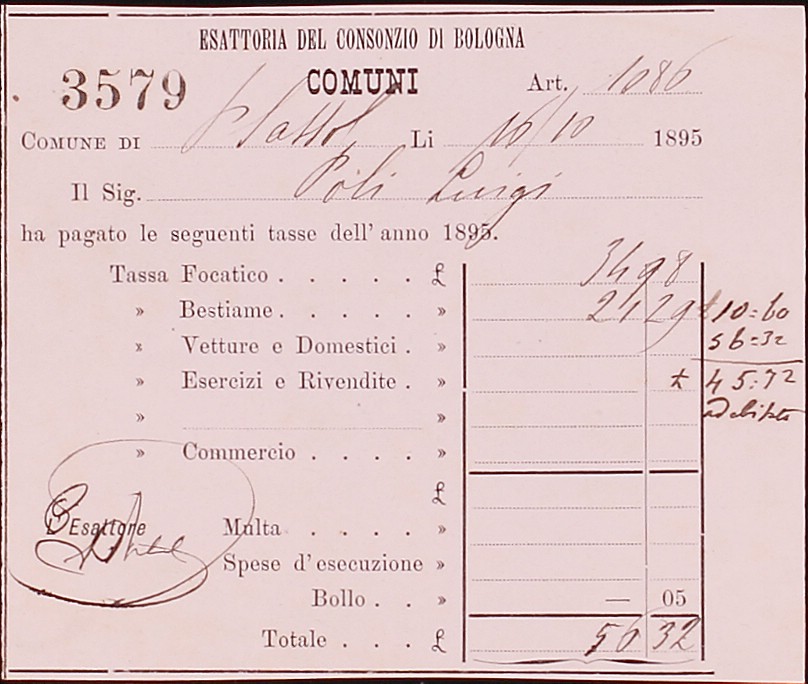 ESATTORIA DEL CONSONZIO DI BOLOGNA
3579 COMUNI Art. 1086
COMUNE DI Li 10/10 1895
Il Sig. Poli Luigi
ha pagato le seguenti tasse dell' anno 1895.
Tassa Focatico . . . . . £ 34 98
» Bestiame . . . . . » 21 29 £ 10=60
» Vetture e Domestici . » 56=32
» Esercizi e Rivendite . » £ 45:72
» »
» Commercio . . . . »
£
Esattore Multa . . . . »
Spese d'esecuzione »
Bollo . . » — 05
Totale . . . £ 56 32